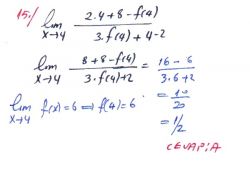 15./ lim x→4 2.4+8-f(4) / 3.f(4)+4-2
lim x→4 8+8-f(4) / 3.f(4)+2 = 16-6 / 3.6+2
lim x→4 f(x)=6 ⇒ f(4)=6 = 10/20
= 1/2
CEVAP:A